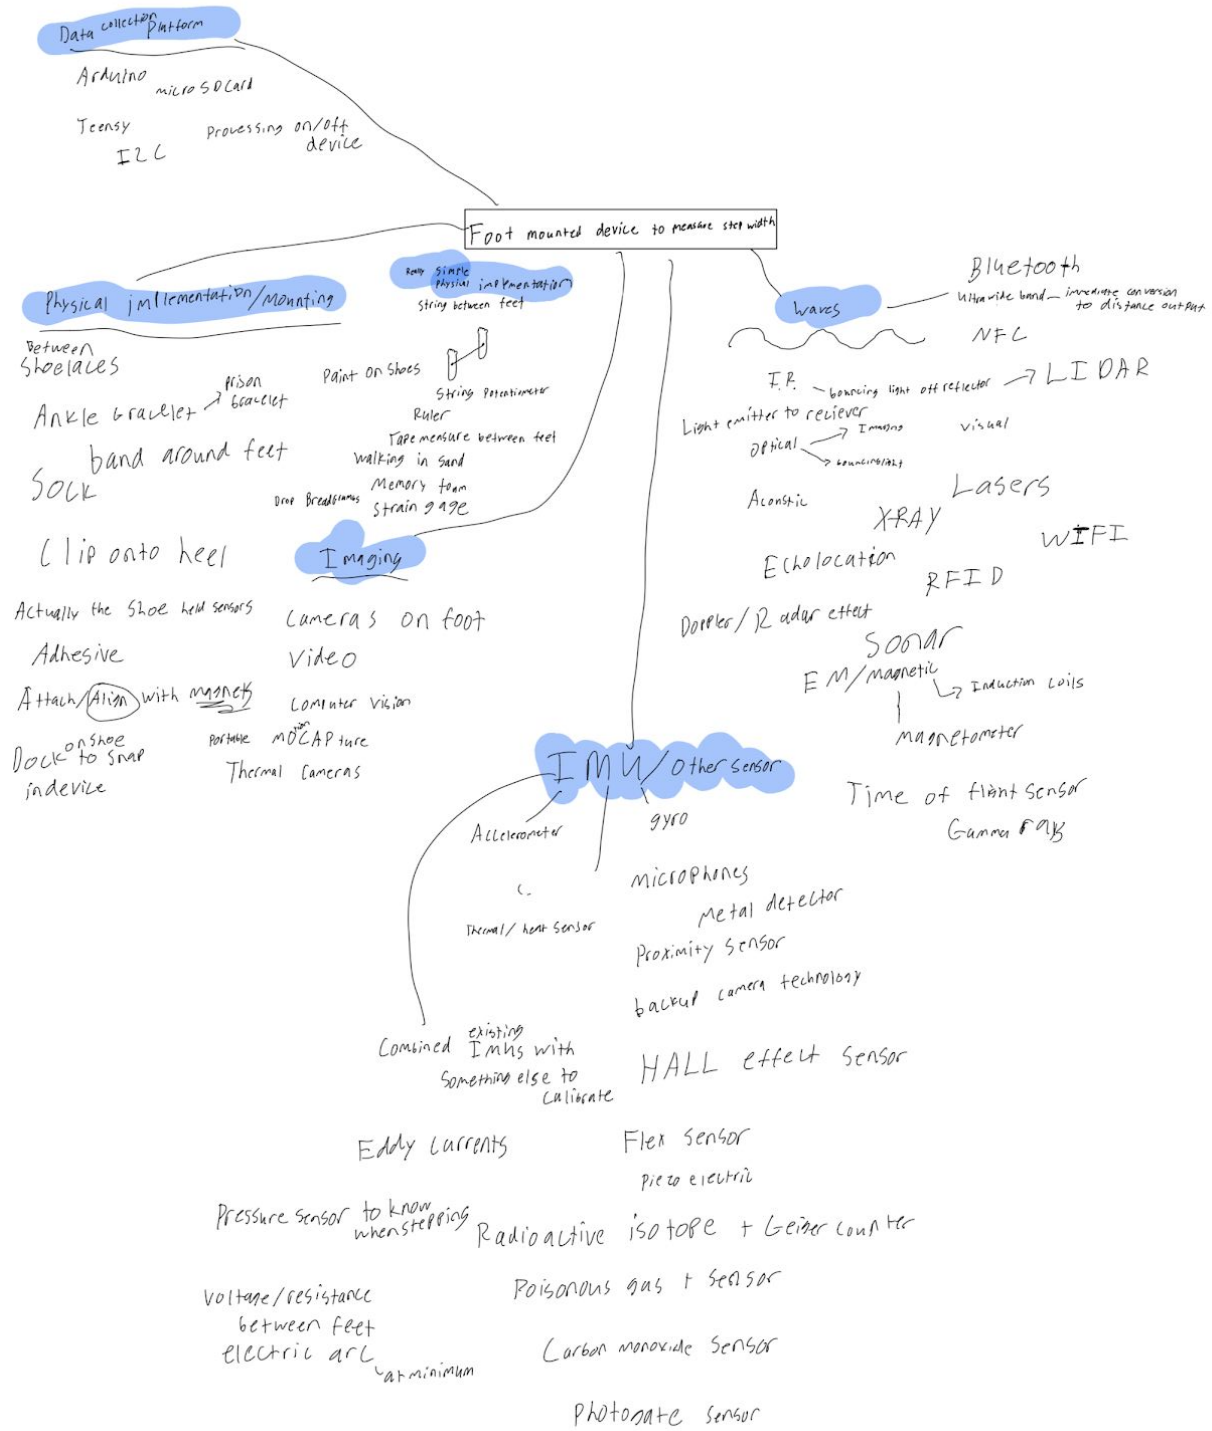 Data collection Platform
Arduino
micro SD Card
Teensy
I2C
Processing on/off
device
Foot mounted device to measure step width
Physical implementation/Mounting
Between
Shoelaces
Ankle bracelet
prison
bracelet
band around feet
Sock
Clip onto heel
Actually the shoe held sensors
Adhesive
Attach/Align with magnets
Dock on shoe
to snap
in device
Really Simple
Physical implementation
String between feet
Paint on Shoes
String Potentiometer
Ruler
Tape measure between feet
walking in sand
Memory foam
Drop Breadcrumbs
Strain gage
Imaging
Cameras on foot
Video
Computer vision
Portable motion CAPture
Thermal Cameras
Waves
Bluetooth
Ultrawide band — immediate conversion
to distance output
NFC
I.R. — bouncing light off reflector
LIDAR
Light emitter to reciever
Optical
Imaging
bouncing light
visual
Acoustic
Lasers
X-RAY
WIFI
Echolocation
RFID
Doppler/Radar effect
Sonar
EM/magnetic
Induction coils
magnetometer
Time of flight sensor
Gamma rays
IMU/Other sensor
Accelerometer
gyro
Thermal/heat sensor
microphones
Metal detector
Proximity sensor
backup camera technology
Combined existing
IMUs with
something else to
calibrate
HALL effect sensor
Eddy currents
Flex sensor
Piezo electric
Pressure sensor to know
when stepping
Radioactive isotope + Geiger counter
Poisonous gas + sensor
Voltage/resistance
between feet
electric arc
at minimum
Carbon monoxide sensor
Photogate sensor